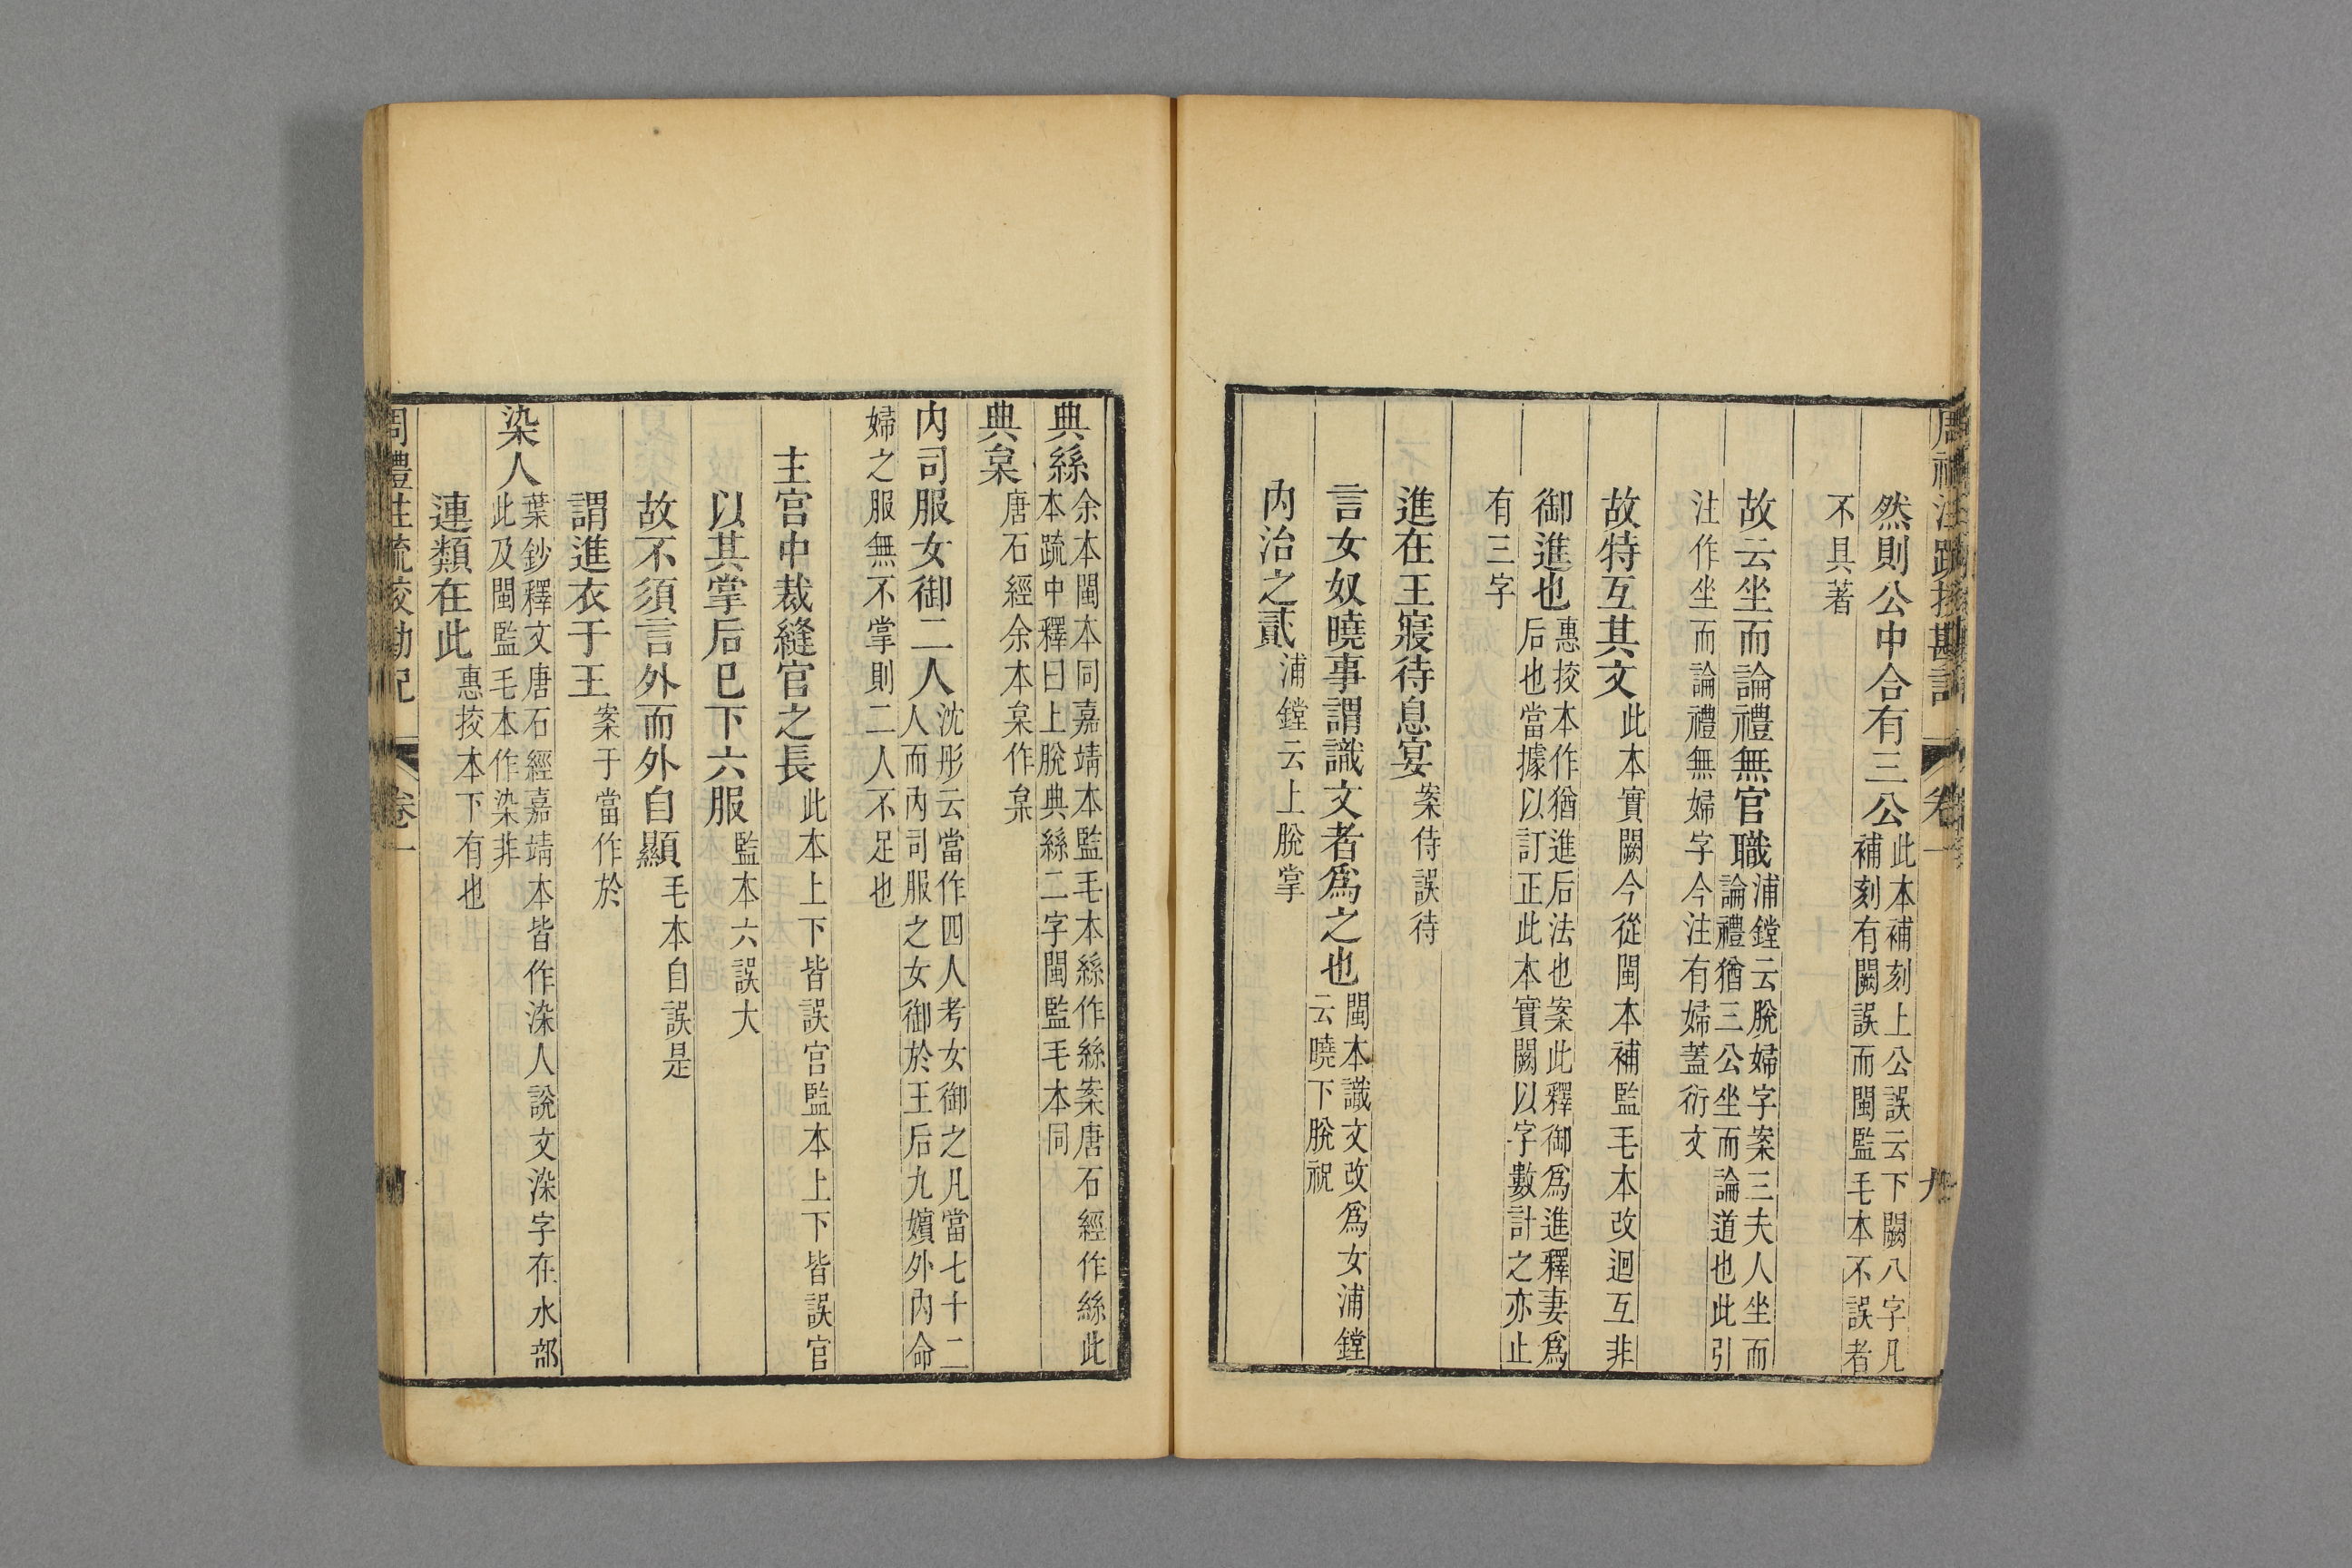 周禮注疏挍勘記 卷一 九
然則公中合有三公
此本補刻上公誤云下闕八字凡
補刻有闕誤而閩監毛本不誤者
不具著
故云坐而論禮無官職
浦鏜云脫婦字案三夫人坐而
論禮猶三公坐而論道也此引
注作坐而論禮無婦字今注有婦蓋衍文
故特互其文
此本實闕今從閩本補監毛本改迴互非
御進也
惠挍本作猶進后法也案此釋御爲進釋妻爲
后也當據以訂正此本實闕以字數計之亦止
有三字
進在王寢待息宴
案侍誤待
言女奴曉事謂識文者爲之也
閩本識文改爲女浦鏜
云曉下脫祝
内治之貳
浦鏜云上脫掌
典絲
余本閩本同嘉靖本監毛本絲作絲案唐石經作絲此
本疏中釋曰上脫典絲二字閩監毛本同
典枲
唐石經余本枲作枲
内司服女御二人
沈彤云當作四人考女御之凡當七十二
人而内司服之女御於王后九嬪外内命
婦之服無不掌則二人不足也
主宮中裁縫官之長
此本上下皆誤宮監本上下皆誤官
以其掌后已下六服
監本六誤大
故不須言外而外自顯
毛本自誤是
謂進衣于王
案于當作於
染人
葉鈔釋文唐石經嘉靖本皆作染人說文染字在水部
此及閩監毛本作染非
連類在此
惠挍本下有也
周禮注疏挍勘記 卷一